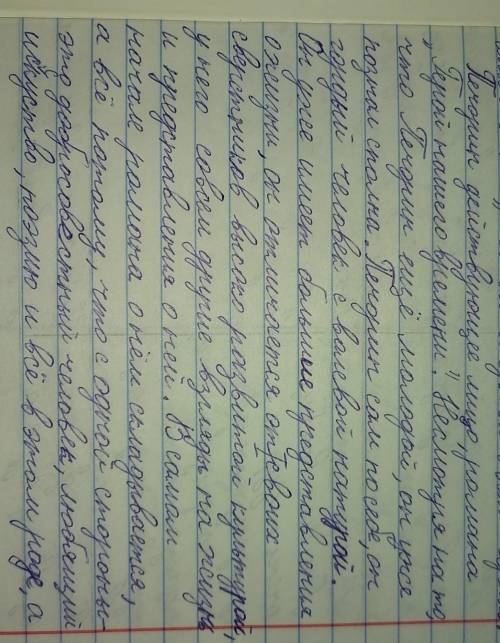 Печорин действующее лицо романа
"Герой нашего времени." Несмотря на то,
что Печорин ещё молодой, он уже
познал сполна. Печорин сам по себе, он
гордый человек с волевой натурой.
Он уже имеет большие представления
о жизни, он отличается от своих
сверстников высоко развитой культурой,
у него совсем другие взгляды на жизнь
и представления о ней. В самом
начале романа о нём складывается,
а всё потому, что с одной стороны-
это добросовестный человек, любящий
искуство, поэзию и всё в этом роде, а